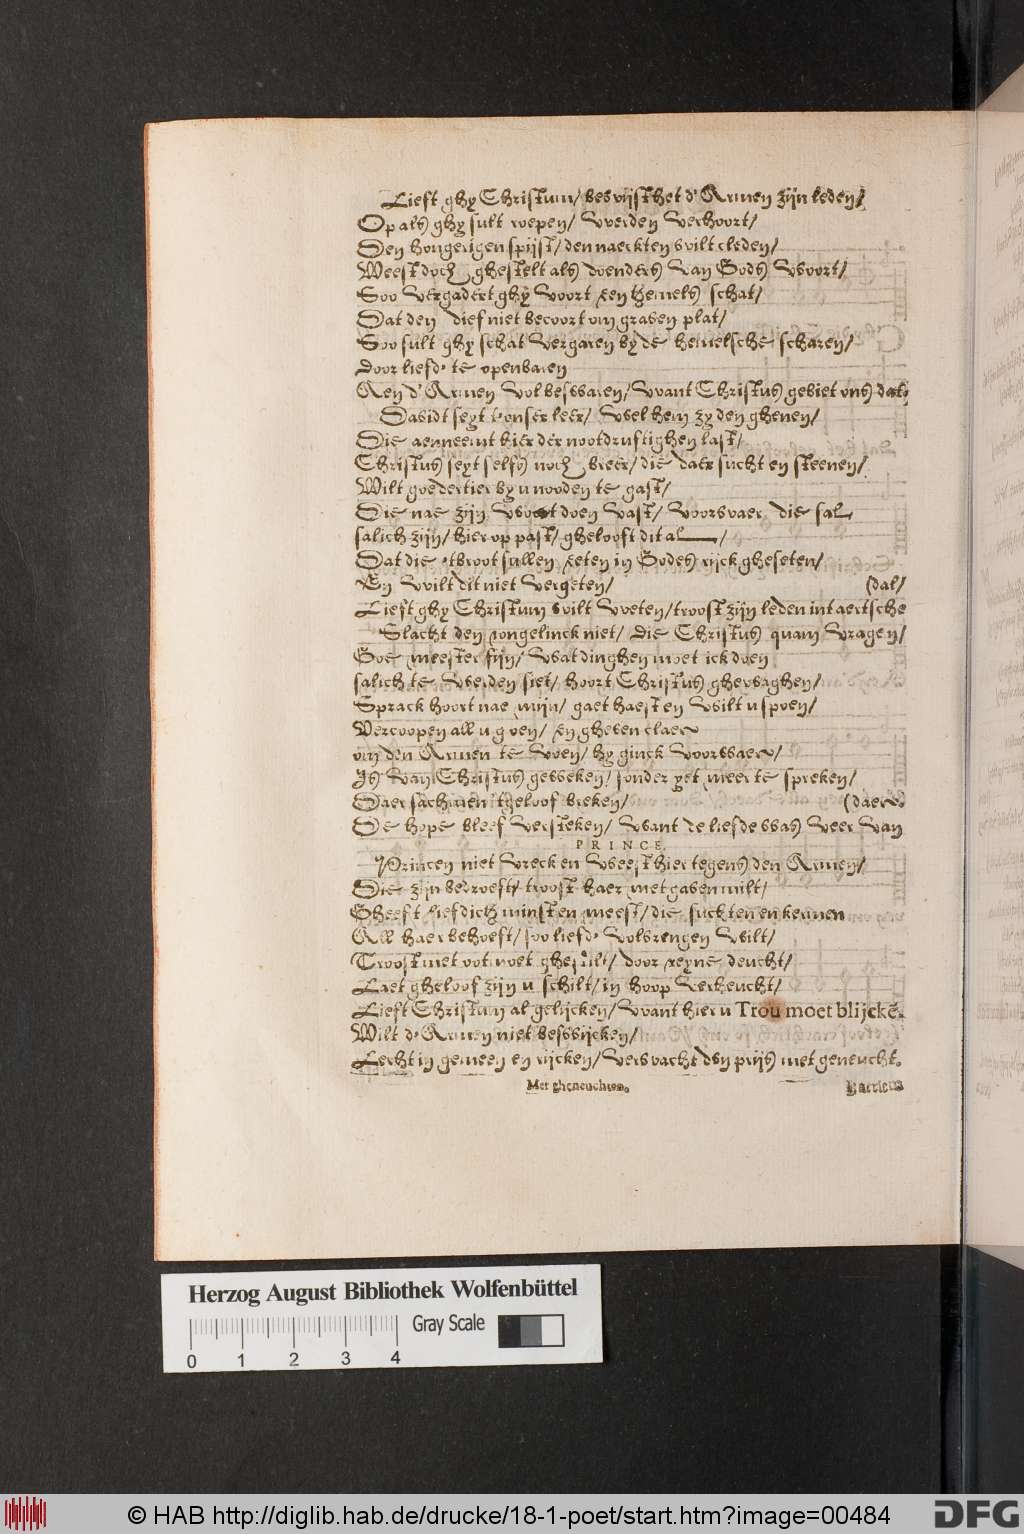 Lieft ghy Christum/ bewijst het d'Armen zijn leden/
Op als ghy sult roepen/ werden verhoort/
Den hongerigen spijst/ den naeckten wilt cleden/
Weest doch ghestelt als doenders van Gods woort/
Soo vergadert ghy voort een hemels schat/
Dat den dief niet becoort om graven plat/
Soo sult ghy schat vergaren by de hemelsche scharen/
Door liefd' te openbaren
Aen d'Armen vol beswaren/ want Christus gebiet ons dat/
Davidt seyt t'onser leer/ wel hem zy den ghenen/
Die aenneemt hier der nootdruftighen last/
Christus seyt selfs noch breer/ die daer sucht en steenen/
Wilt goedertier by u nooden te gast/
Die nae zijn woort doen vast/ voorwaer die sal
salich zijn/ hier op past/ ghelooft dit al
Dat die 'tbroot sullen eeten in Godes rijck gheseten/
En wilt dit niet vergeten/ (dal/
Lieft ghy Christum wilt weten/ troost zijn leden int aertsche
Slacht den Jongelinck niet/ die Christus quam vragen/
Goe meester fijn/ wat dinghen moet ick doen
salich te werden siet/ hoort Christus ghewaghen/
Sprack hoort nae mijn/ gaet haest en wilt u spoen/
Vercoopen all u goen/ en gheven claer
om den Armen te voen/ hy ginck voorwaer/
Is van Christus geweken/ sonder yet meer te spreken/
Daer sachmen 'tgeloof breken/ (daer.
De hope bleef versteken/ want de liefde was veer van
PRINCE.
Princen niet vreck en weest hier tegens den Armen/
Die zijn bedroeft/ troost haer met gaven milt/
Gheeft liefdich minst en meest/ die suchten en kermen
All haer behoeft/ soo liefd' volbrengen wilt/
Troost met ootmoet ghestilt/ door reyne deucht/
Laet gheloof zijn u schilt/ in hoop verheucht/
Lieft Christum al gelijcken/ want hier u Trou moet blijckē.
Wilt d'Armen niet beswijcken/
Leeft in gemeen en rijcken/ verwacht den prijs met geneucht.
Met gheneuchten.
Haerlem
Herzog August Bibliothek Wolfenbüttel
Gray Scale
0 1 2 3 4
© HAB http://diglib.hab.de/drucke/18-1-poet/start.htm?image=00484
DFG